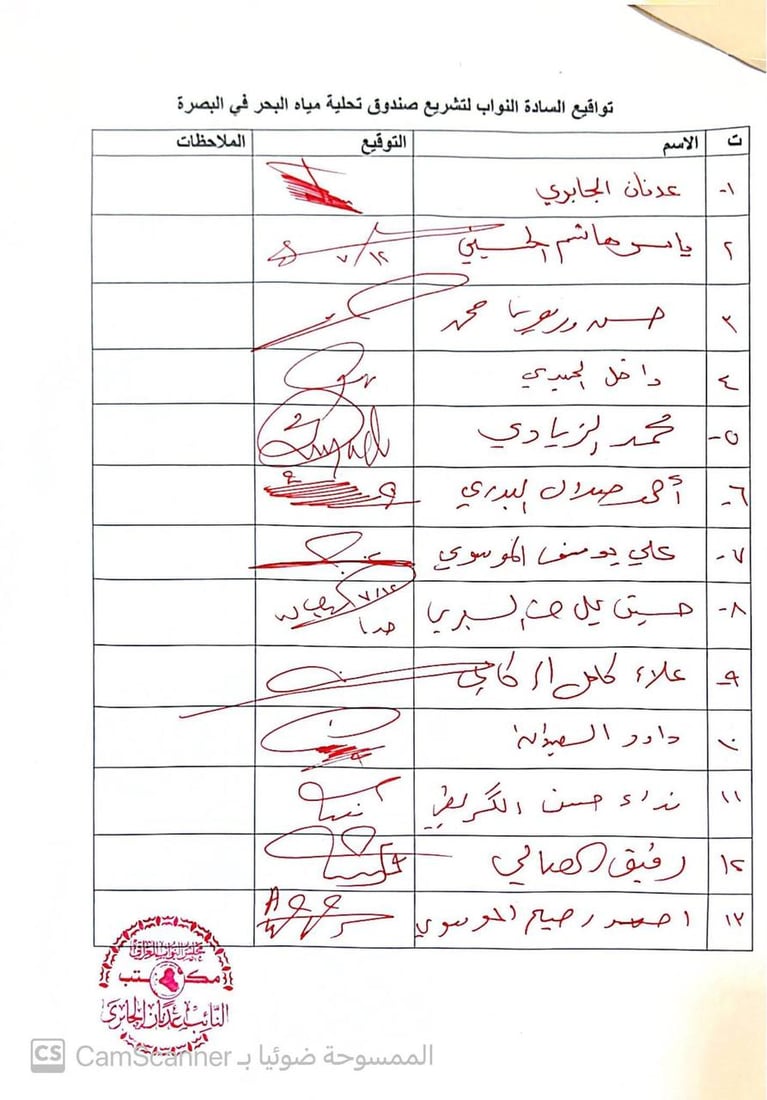 تواقيع السادة النواب لتشريع صندوق تحلية مياه البحر في البصرة
ت الاسم التوقيع الملاحظات
١- عدنان الجابري
٢ ياسر هاشم الحسيني ٧/١٢
٣ حسن محمد
٤ داخل
٥- محمد الزيادي
٦- أحمد صدال البدري
٧- علي يوسف الموسوي
٨- حسين علي ٧/١٢
٩- علاء كامل الركابي
١٠ داود
١١ نداء حسن الگريطي
١٢ رفيق الصالحي
١٣ احمد رحيم الموسوي
مجلس النواب العراقي
مكتب
النائب عدنان الجابري
CS CamScanner الممسوحة ضوئيا بـ